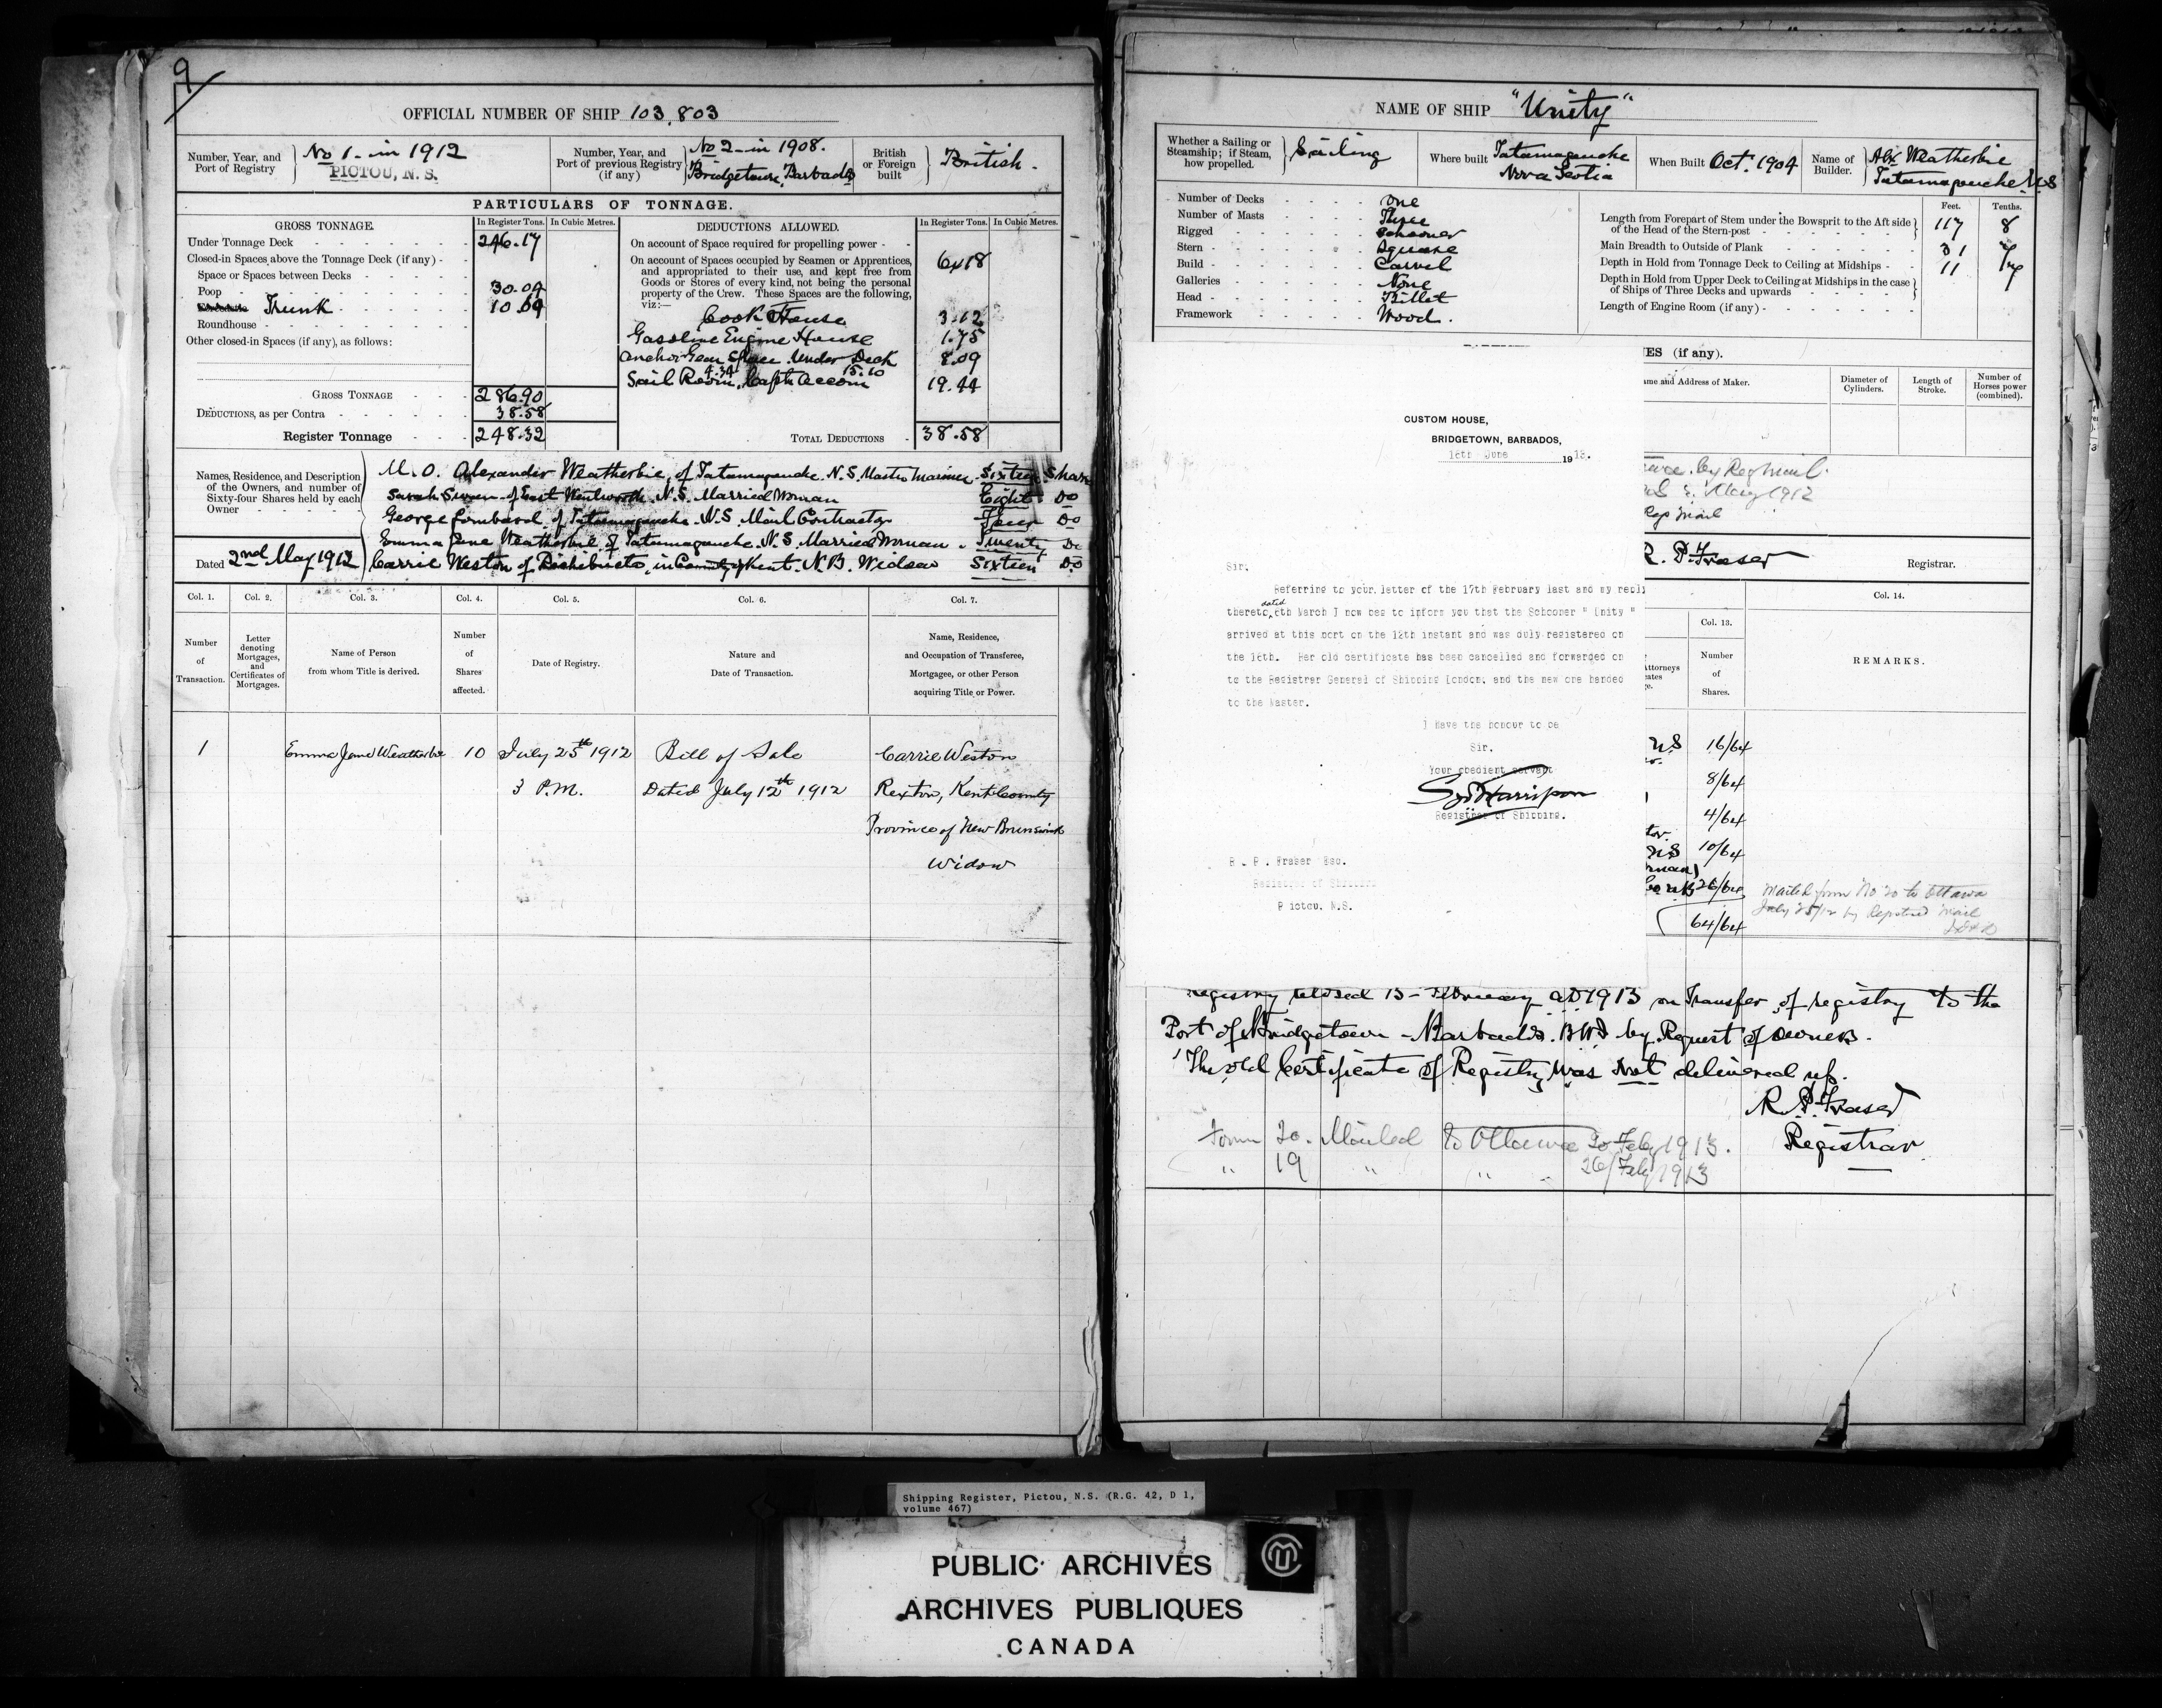 9
OFFICIAL NUMBER OF SHIP 103,803
Number, Year, and Port of Registry No 1 - in 1912
PICTOU, N. S.
Number, Year, and Port of previous Registry (if any) No 2 - in 1908. Bridgetown, Barbados
British or Foreign built British.
PARTICULARS OF TONNAGE.
GROSS TONNAGE. In Register Tons. In Cubic Metres.
Under Tonnage Deck 246.17
Closed-in Spaces above the Tonnage Deck (if any)
Space or Spaces between Decks
Poop 30.04
Trunk 10.69
Roundhouse
Other closed-in Spaces (if any), as follows:
GROSS TONNAGE 286.90
DEDUCTIONS, as per Contra 38.58
Register Tonnage 248.32
DEDUCTIONS ALLOWED. In Register Tons. In Cubic Metres.
On account of Space required for propelling power
On account of Spaces occupied by Seamen or Apprentices, 6.18
and appropriated to their use, and kept free from
Goods or Stores of every kind, not being the personal
property of the Crew. These Spaces are the following,
viz:—
Cook House 3.12
Gasoline Engine House 1.75
Anchor Gear Space Under Deck 8.09
Sail Room 4.34 Capt. Accom 15.10 19.44
TOTAL DEDUCTIONS 38.58
Names, Residence, and Description of the Owners, and number of Sixty-four Shares held by each Owner
M. O. Alexander Weatherbie, of Tatamagouche. N.S. Master Mariner - Sixteen Shares
Sarah Swan of East Wentworth. N.S. Married Woman Eight Do
George Lombard, of Tatamagouche. N.S. Mail Contractor Four Do
Emma Jane Weatherbie of Tatamagouche. N.S. Married Woman. Twenty Do
Carrie Weston of Richibucto, in County of Kent. N.B. Widow Sixteen Do
Dated 2nd May 1912
Col. 1. Col. 2. Col. 3. Col. 4. Col. 5. Col. 6. Col. 7.
Number of Transaction.
Letter denoting Mortgages, and Certificates of Mortgages.
Name of Person from whom Title is derived.
Number of Shares affected.
Date of Registry.
Nature and Date of Transaction.
Name, Residence, and Occupation of Transferee, Mortgagee, or other Person acquiring Title or Power.
1 Emma Jane Weatherbie 10 July 25th 1912 Bill of Sale Carrie Weston
3 P.M. Dated July 12th 1912 Rexton, Kent County
Province of New Brunswick
Widow
NAME OF SHIP "Unity"
Whether a Sailing or Steamship; if Steam, how propelled. Sailing
Where built Tatamagouche Nova Scotia
When Built Oct. 1904
Name of Builder. Alex Weatherbie Tatamagouche N.S
Number of Decks One
Number of Masts Three
Rigged Schooner
Stern Square
Build Carvel
Galleries None
Head Billet
Framework Wood.
Feet. Tenths.
Length from Forepart of Stem under the Bowsprit to the Aft side of the Head of the Stern-post 117 8
Main Breadth to Outside of Plank 31 7
Depth in Hold from Tonnage Deck to Ceiling at Midships 11 7
Depth in Hold from Upper Deck to Ceiling at Midships in the case of Ships of Three Decks and upwards
Length of Engine Room (if any)
ES (if any).
ame and Address of Maker.
Diameter of Cylinders.
Length of Stroke.
Number of Horses power (combined).
by Reg Mail
May 1912
Mail
R. P. Fraser Registrar.
CUSTOM HOUSE,
BRIDGETOWN, BARBADOS,
18th June 1913.
Sir,
Referring to your letter of the 17th February last and my reply
thereto, dated 6th March I now beg to inform you that the Schooner " Unity "
arrived at this port on the 12th instant and was duly registered on
the 16th. Her old certificate has been cancelled and forwarded on
to the Registrar General of Shipping London, and the new one handed
to the Master.
I Have the honour to be
Sir.
Your obedient servant
Registrar of Shipping.
R. P. Fraser Esq.
Registrar of Shipping
Pictou. N.S.
Col. 13. Col. 14.
Attorneys
Number of Shares.
REMARKS.
NS 16/64
8/64
4/64
NS 10/64
26/64
64/64
Mailed form No 20 to Ottawa
July 25/12 by Registered Mail
Registry closed 15 - February AD 1913 on Transfer of registry to the
Port of Bridgetown - Barbados. B.W.I by Request of Owners.
The old Certificate of Registry was Not delivered up.
R. P. Fraser
Registrar
Form 20. Mailed to Ottawa 20 Feby 1913.
" 19 " " 26/Feby 1913
Shipping Register, Pictou, N.S. (R.G. 42, D 1,
volume 467)
PUBLIC ARCHIVES
ARCHIVES PUBLIQUES
CANADA